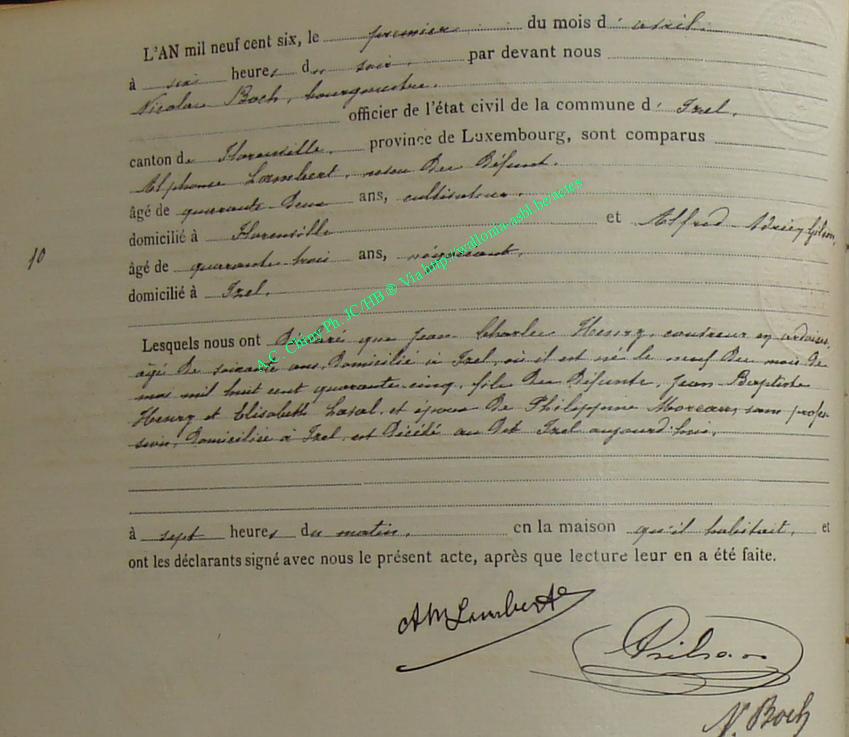 L'AN mil neuf cent six, le premier du mois d'avril.
à six heures du soir, par devant nous
Nicolas Boch, bourgmestre.
officier de l'état civil de la commune d'Izel,
canton de Florenville, province de Luxembourg, sont comparus
Alphonse Lambert, neveu du défunt.
âgé de quarante deux ans, cultivateur,
domicilié à Florenville et Alfred Adrien Gilson,
âgé de quarante trois ans, négociant,
domicilié à Izel.
10
Lesquels nous ont déclaré que Jean Charles Henry, couvreur en ardoises,
âgé de soixante ans, domicilié à Izel, où il est né le neuf du mois de
mai mil huit cent quarante cinq, fils des défunts, Jean Baptiste
Henry et Elisabeth Lasal, et époux de Philippine Moreaux, sans profes-
sion, domiciliée à Izel, est décédé au dit Izel aujourd'hui,
à sept heures du matin, en la maison qu'il habitait, et
ont les déclarants signé avec nous le présent acte, après que lecture leur en a été faite.
A.C. Chiny Ph. JC/HB ® Via http://wallonia-asbl.be/actes
Lambert
Gilson
N. Boch